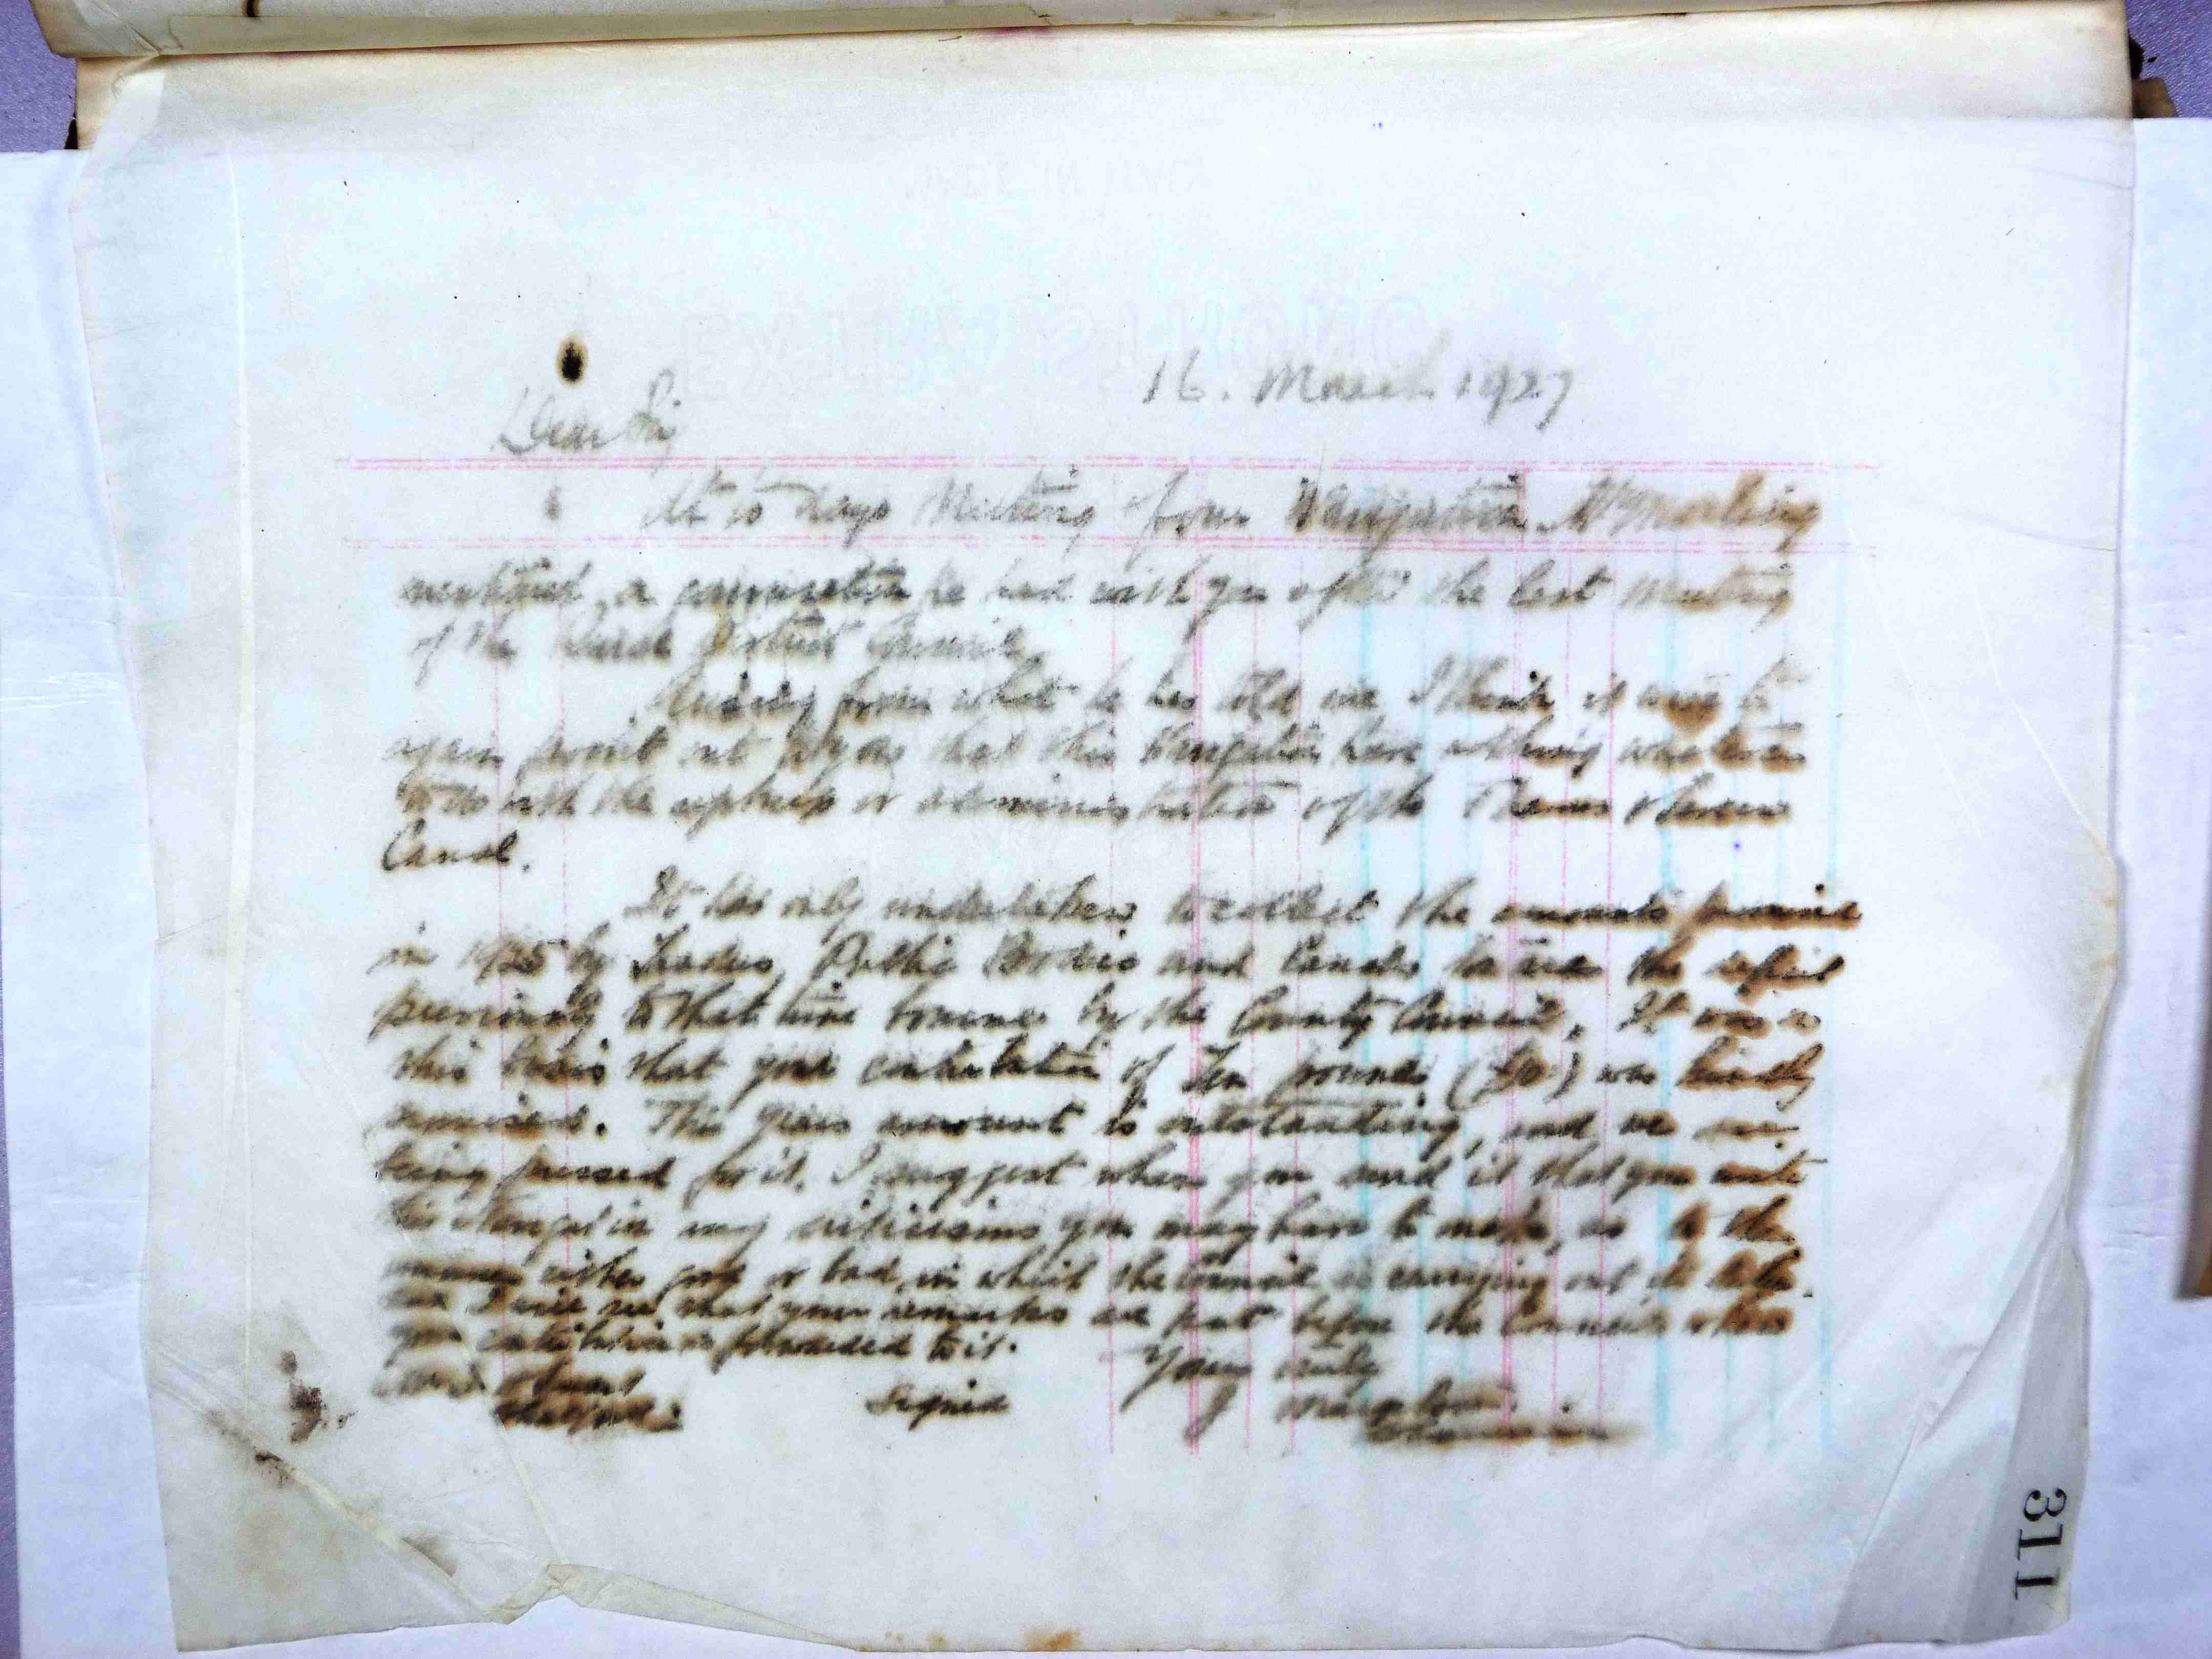 16. March 1927
Dear Sir
At to days Meeting of our Navigation Mr
mentioned, a conversation he had with you after the last Meeting
of the Rural District Council
Arising from what he has told me I think it may be
again point out to you that this Navigation have nothing whatever
to do with the upkeep or administration of the Thames & Severn
Canal.
It has only undertaken to collect the amounts promised
in 1925 by Traders, Public Bodies and Canals to the deficit
previously to that time by the County Council. It was
this basis that your contribution of Ten pounds (£10) was kindly
promised. This years amount is outstanding, and we are
being pressed for it. I suggest when you send it that you write
this Navigation any criticisms you may have to make, as to the
manner either good or bad, in which the Council is carrying out its
and I will see that your remarks are put before the Council when
your contribution is forwarded to it.
Yours truly
Signed
311